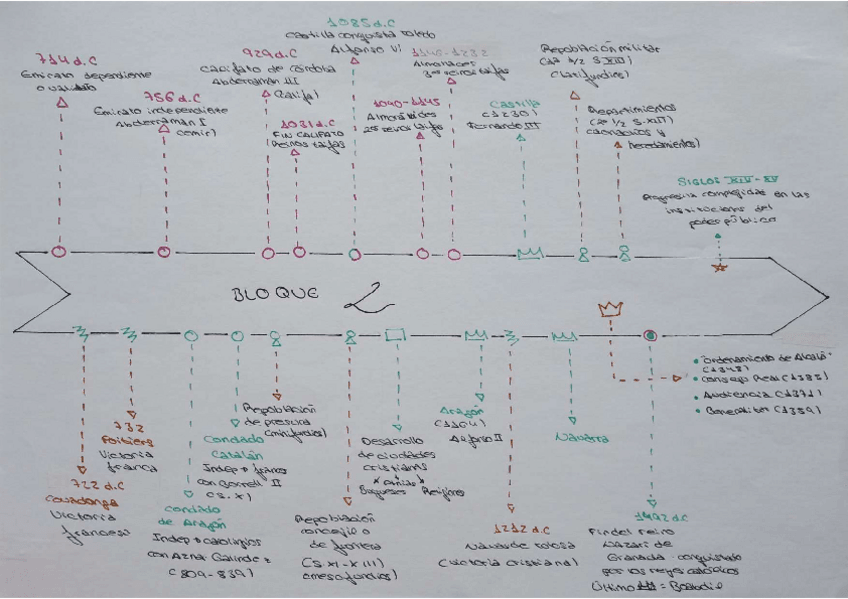 714 d.C
Emirato dependiente
o valiato
756 d.C
Emirato independiente
Abderramán I
(emir)
929 d.C
Califato de Córdoba
Abderramán III
(Califa)
1031 d.C
FIN CALIFATO
(Reinos taifas
1085 d.C
Castilla conquista Toledo
Alfonso VI
1040-1145
Almorávides
2os reinos taifas
1145-1232
Almohades
3os reinos taifas
Castilla
(1230)
Fernando III
Repoblación militar
(1ª 1/2 S XIII)
(latifundios)
Repartimientos
(2ª 1/2 S.XIII)
(donadíos y
heredamientos)
SIGLOS XIV-XV
Progresiva complejidad en las
instituciones del
poder público
BLOQUE 2
722 d.C
Covadonga
Victoria
732
Poitiers
Victoria
franca
Condado
de Aragón
Indep → carolingios
con Aznar Galíndez
(809-839)
Condado
Catalán
Indep → francos
con Borrell II
(S.X)
Repoblación
de presura
(minifundios)
Repoblación
concejil o
de frontera
(S XI-XIII)
(mesofundios)
Desarrollo
de ciudades
cristianas
Burgueses
Aragón
(1164)
Alfonso II
1212 d.C
Navas de Tolosa
(victoria cristiana)
Navarra
1492 d.C
Fin del reino
Nazarí de
Granada conquistado
por los reyes católicos
Último = Boabdil
Ordenamiento de Alcalá
(1348)
Consejo Real (1385)
Audiencia (1371)
Generalitat (1359)